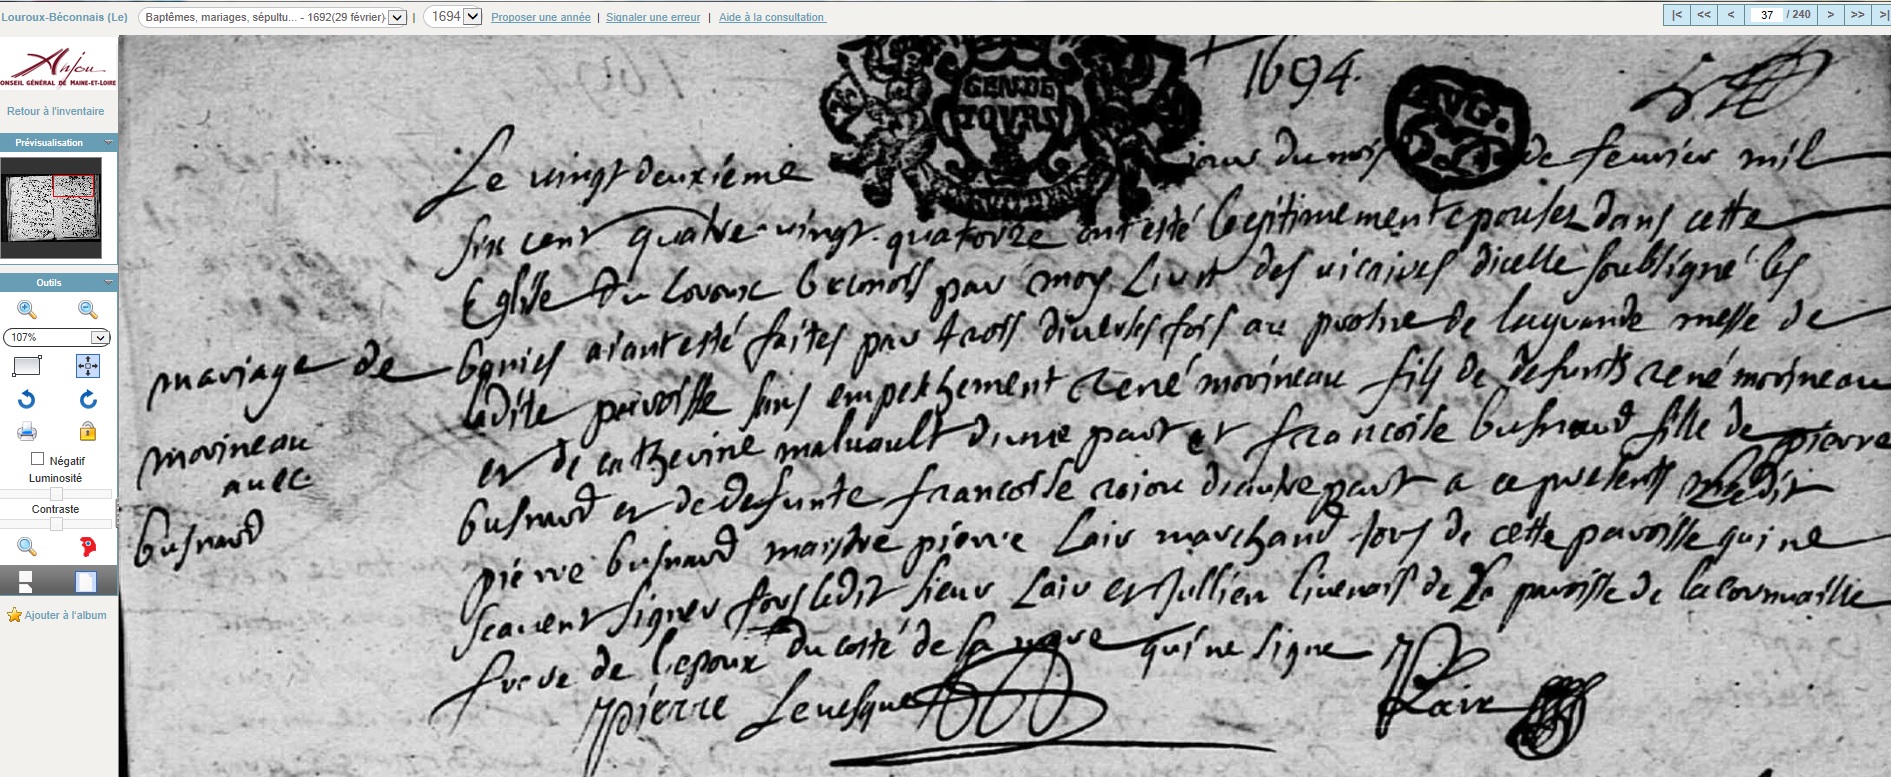 Louroux-Béconnais (Le)
Baptêmes, mariages, sépultu... - 1692(29 février)-
|
1694
Proposer une année | Signaler une erreur | Aide à la consultation
|< << < 37 / 240 > >> >|
Anjou
CONSEIL GÉNÉRAL DE MAINE-ET-LOIRE
Retour à l'inventaire
Prévisualisation
Outils
107%
Négatif
Luminosité
Contraste
Ajouter à l'album
GEN.DE
TOURS
1694.
mariage de
morineau
avec
busnard
Le vingt deuxiéme jour du mois de feuvier mil
six cent quatre-vingt-quatorze ont esté legitimement epousez dans cette
Eglise du Loroux beconois par moy L'un des vicaires dicelle soubsigné les
banies aiant esté faites par trois diverses fois au prosne de la grande messe de
ladite paroisse sans empeschement rené morineau fils de defunts rené morineau
et de catherine maluault d'une part et francoise busnard fille de pierre
busnard et de defunte francoise d'autre part a ce presents ledit
pierre busnard maistre pierre Lair marchand tous de cette paroisse qui ne
scavent signer fors ledit sieur Lair et Jullien de la paroisse de la cornuaille
frere de l'epoux du costé de sa qui ne signe
pierre Levesque
PLair